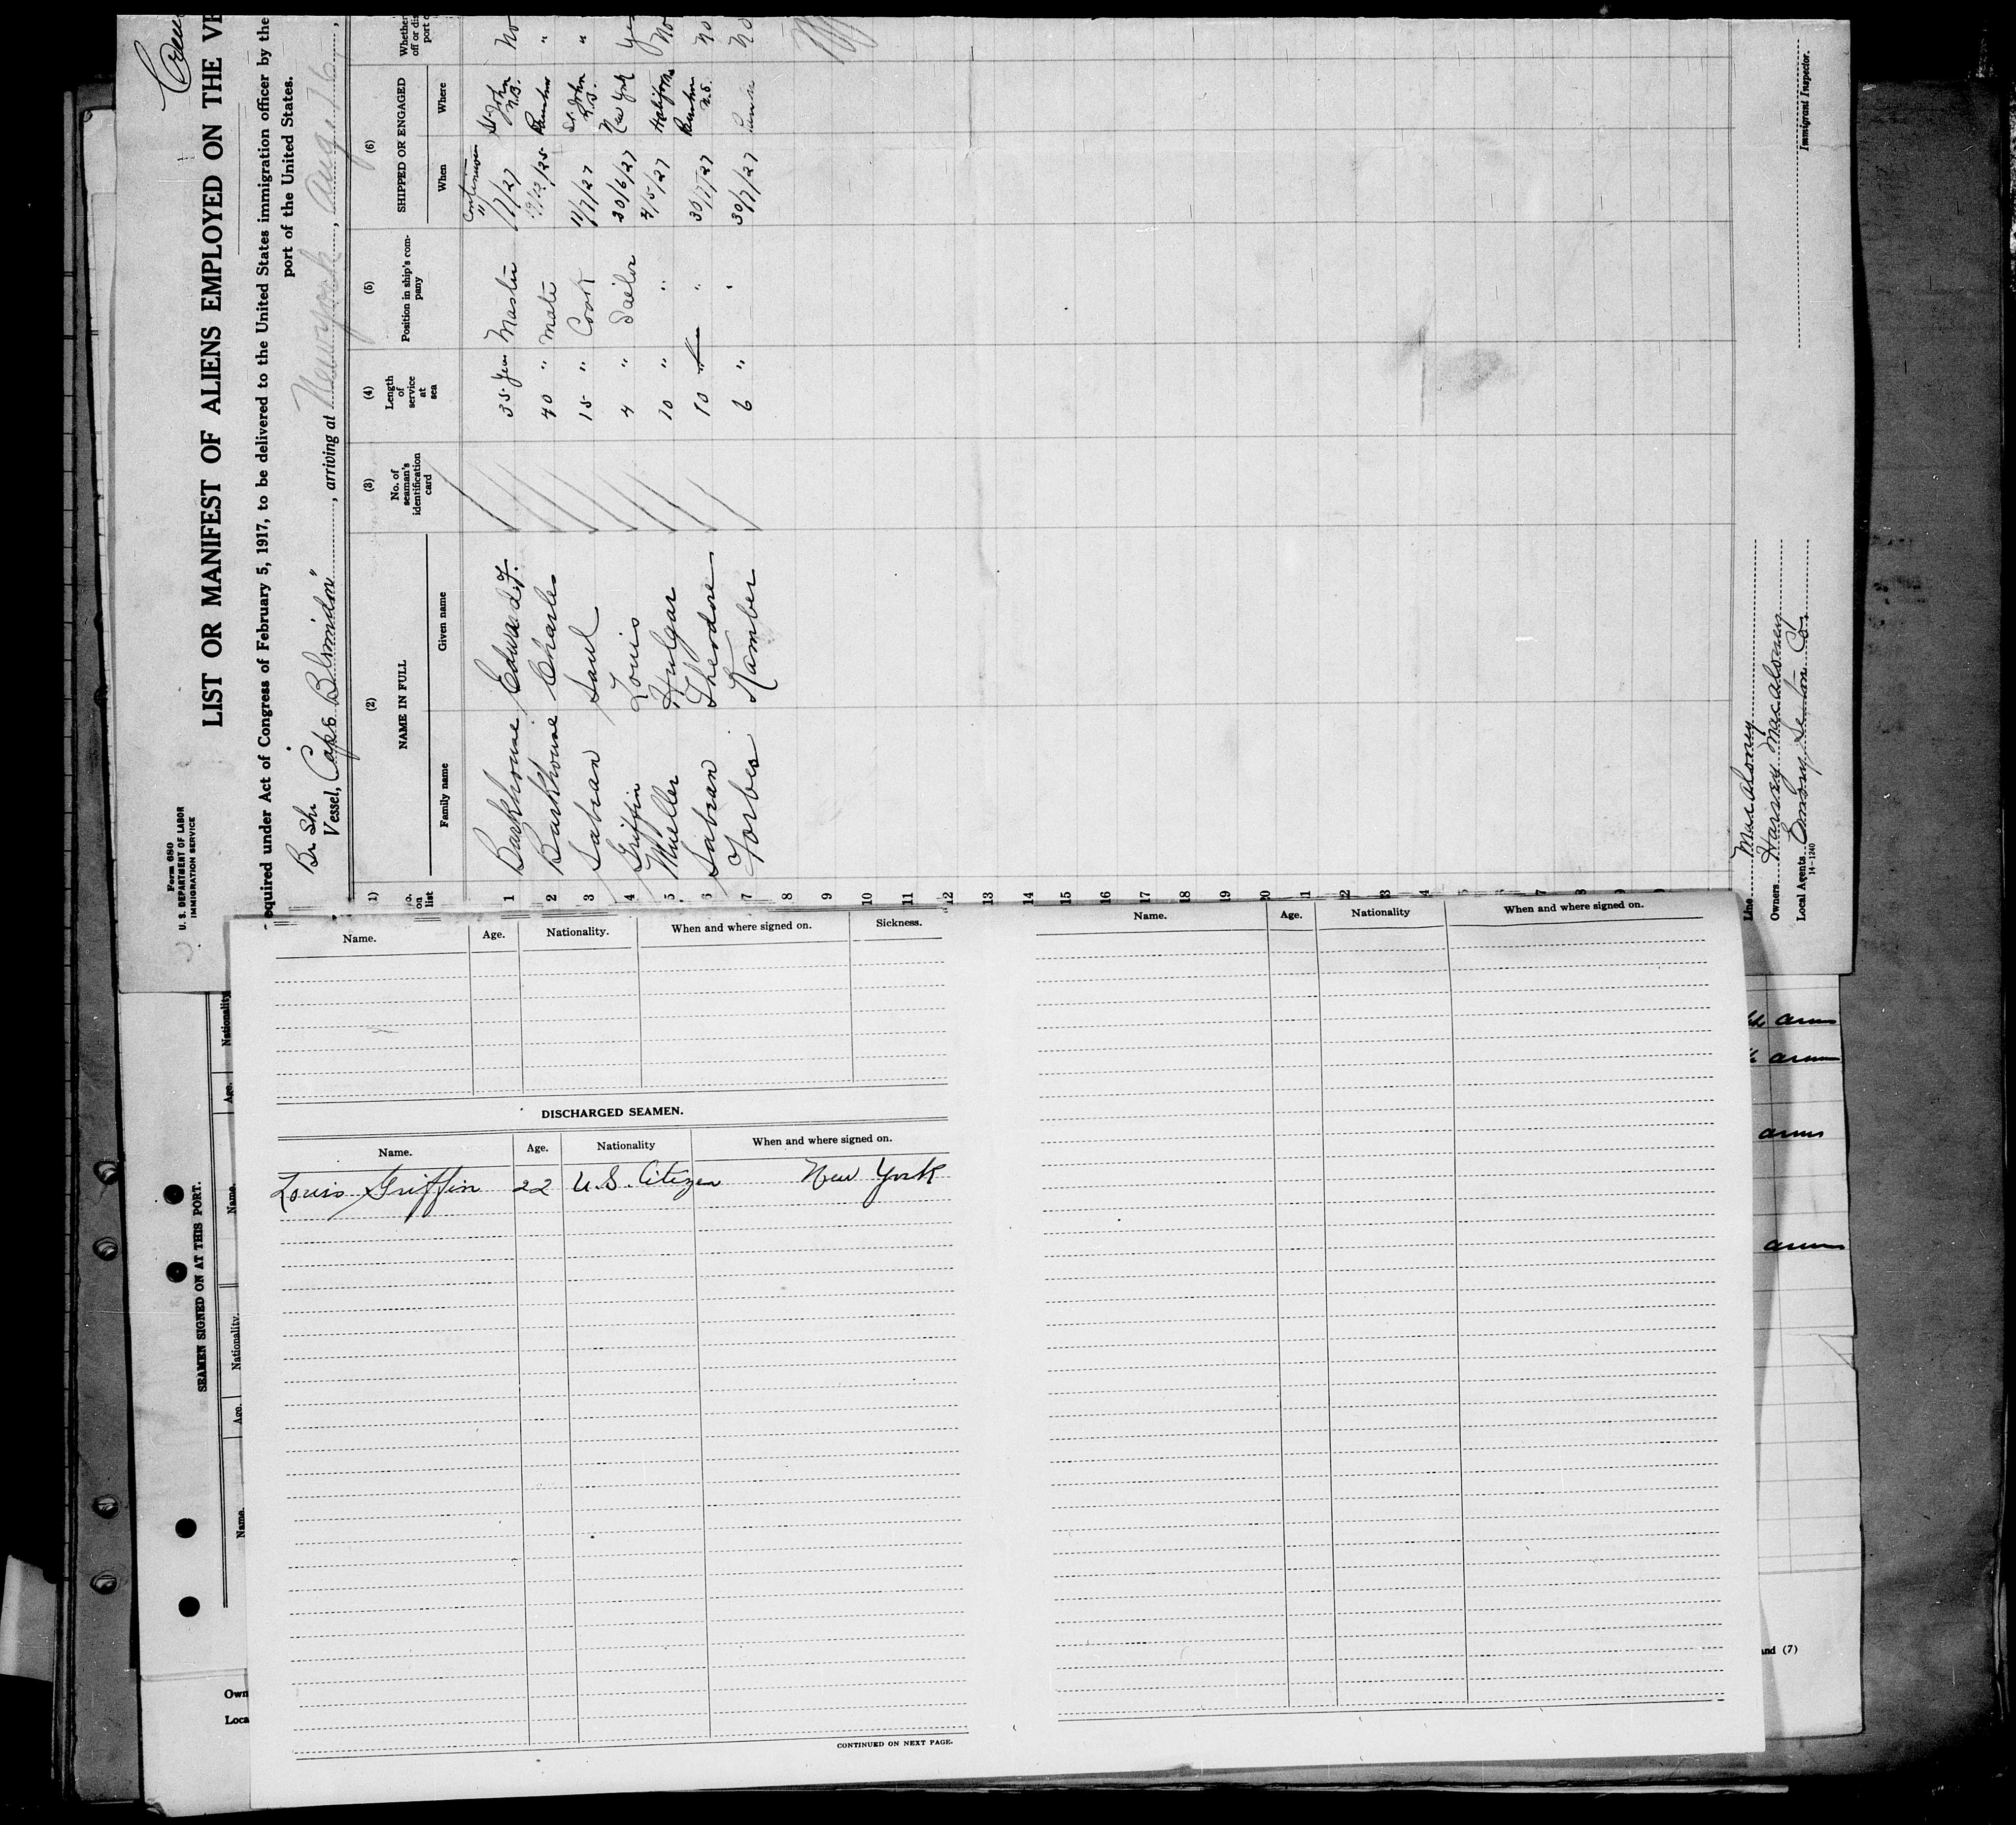 Form 680
U. S. DEPARTMENT OF LABOR
IMMIGRATION SERVICE
Crew
LIST OR MANIFEST OF ALIENS EMPLOYED ON THE VE
equired under Act of Congress of February 5, 1917, to be delivered to the United States immigration officer by the
port of the United States.
Br Shr
Vessel, Cape Blomidon", arriving at New York, Aug. 16,
(1) (2) (3) (4) (5) (6)
o. on list
NAME IN FULL
Family name Given name
No. of seaman's identification card
Length of service at sea
Position in ship's company
SHIPPED OR ENGAGED
When Where
Whether
off or dis
port o
Continuous
1 Barkhouse Edward F. 35 Master 27 St John N.B. No
2 Barkhouse Charles 40 " Mate /12/25 "
3 Sabean Saul 15 " Cook 11/7/27 St. John N.B. "
4 Griffin Louis 4 " Sailor 20/6/27 New York Yes
5 Mueller 10 " " 4/5/27 No
6 Sabean Theodore 10 " 30/7/27 N.S. No
7 Forbes 6 " " 30/7/27 No
8
9
10
11
12
13
14
15
16
17
18
19
20
1
22
3
4
5
6
7
8
9
Line Macaloney
Owners Harvey Macaloney
Local Agents Seaton Co.
14-1240
Immigrant Inspector.
Name. Age. Nationality. When and where signed on. Sickness.
DISCHARGED SEAMEN.
Name. Age. Nationality When and where signed on.
Louis Griffin 22 U.S. Citizen New York
CONTINUED ON NEXT PAGE.
Name. Age. Nationality When and where signed on.
SEAMEN SIGNED ON AT THIS PORT.
Name. Age. Nationality. Name. Age. Nationality
Own
Loca
arms
arms
arms
arms
and (7)